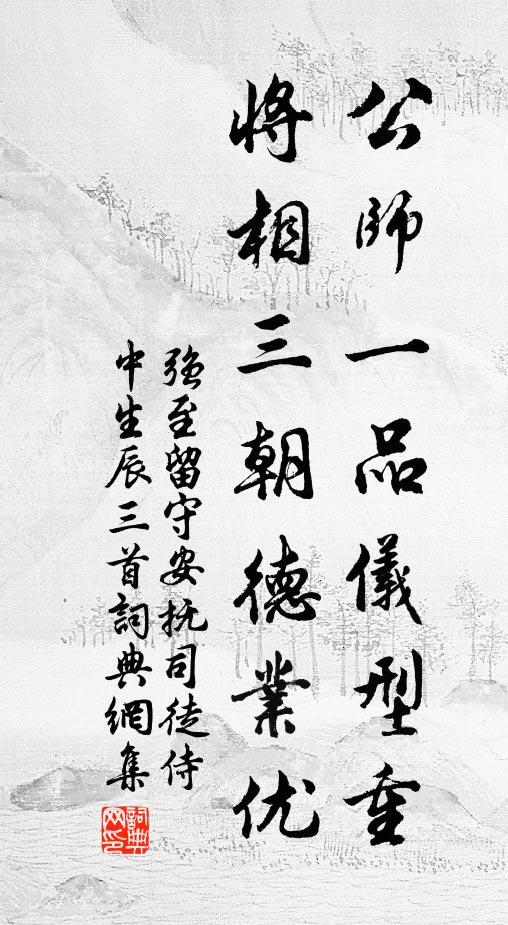 公师一品儀型重
将相三朝德業优
强至留守安抚司徒侍
中生辰三首詞典網集
詞典
网印